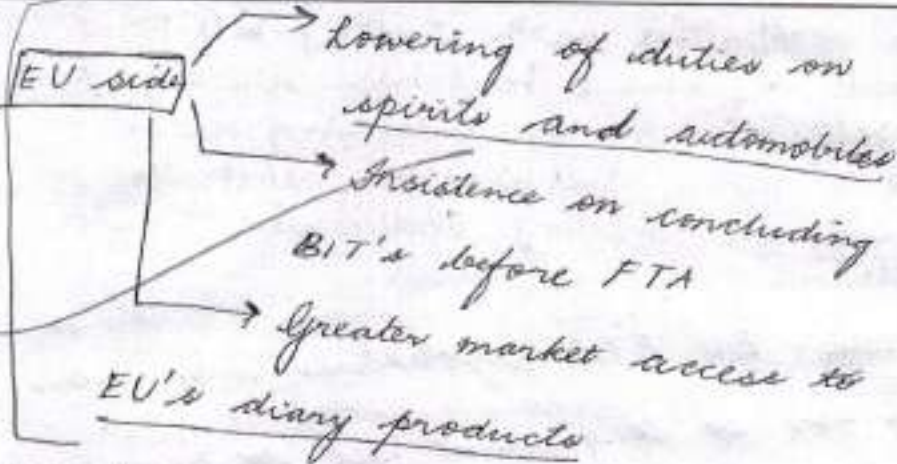 EU side
Lowering of duties on
spirits and automobiles
Insistence on concluding
BIT's before FTA
Greater market access to
EU's diary products